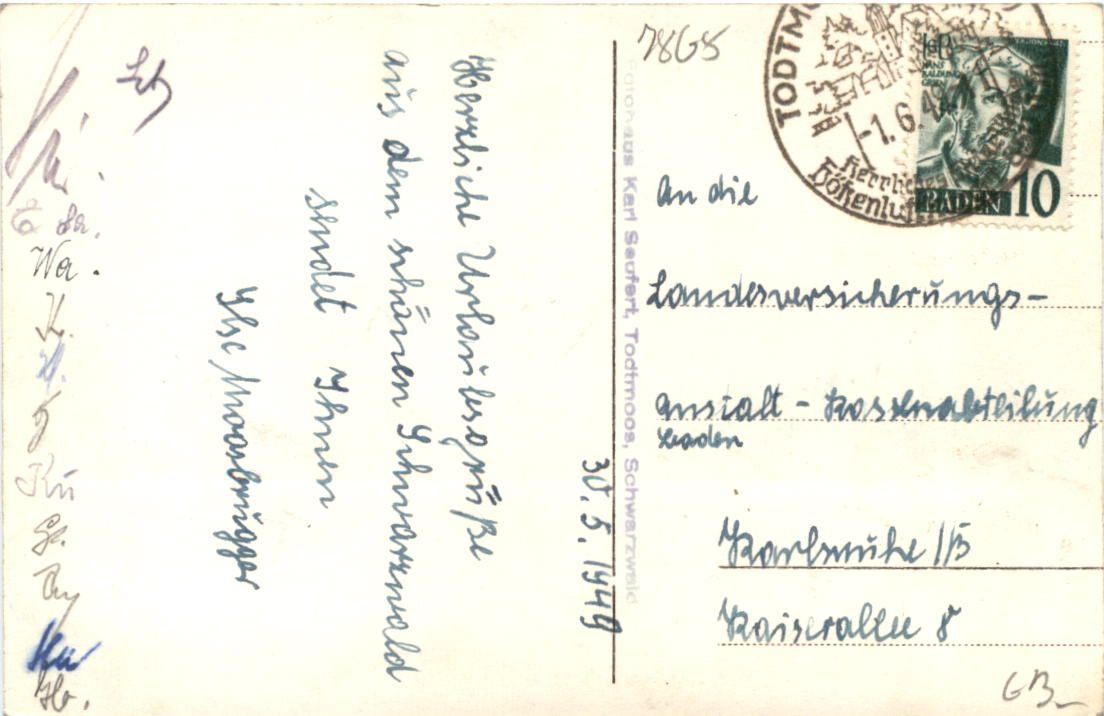 Herzliche Urlaubsgrüße
aus dem schönen Schwarzwald
sendet Ihnen
Ilse Moosbrugger
30.5.1949
Fotohaus Karl Seufert, Todtmoos, Schwarzwald
7865
TODTMO
-1.6.49
Herrliches
Höhenluft
HGB
HANS
BALDUNG
GRIEN
BADEN 10
An die
Landesversicherungs-
anstalt - Kassenabteilung
Baden
Karlsruhe i/B
Kaiserallee 8
Wa.
K.
Ku
GB